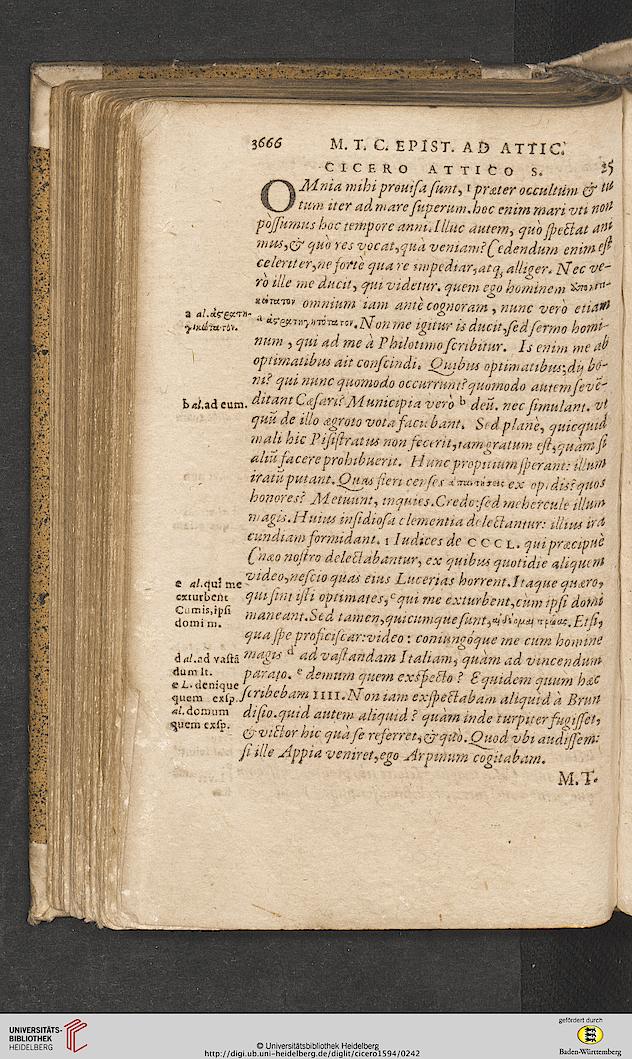 3666 M. T. C. EPIST. AD ATTIC.
CICERO ATTICO S. 25
OMnia mihi prouisa sunt, 1 præter occultum & tu
tum iter ad mare superum. hoc enim mari vti non
possumus hoc tempore anni. Illuc autem, quò spectat ani
mus, & quò res vocat, qua veniam? Cedendum enim est
celeriter, ne fortè qua re impediar, atq; alliger. Nec ve-
rò ille me ducit, qui videtur. quem ego hominem
omnium iam antè cognoram, nunc verò etiam
a al.
a . Non me igitur is ducit, sed sermo homi-
num, qui ad me à Philotimo scribitur. Is enim me ab
optimatibus ait conscindi. Quibus optimatibus, dij bo-
ni? qui nunc quomodo occurrunt? quomodo autem se vē-
b al. ad eum.
ditant Cæsari? Municipia verò b deū. nec simulant. vt
quū de illo ægroto vota faciebant. Sed planè, quicquid
mali hic Pisistratus non fecerit, tam gratum est, quàm si
aliū facere prohibuerit. Hunc propitium sperant: illum
iratū putant. Quas fieri censes ἀπαντήσεις ex opidis? quos
honores? Metuunt, inquies. Credo: sed mehercule illum
magis. Huius insidiosa clementia delectantur: illius ira
cundiam formidant. 1 Iudices de CCCL. qui præcipuè
Cnæo nostro delectabantur, ex quibus quotidie aliquem
video, nescio quas eius Lucerias horrent. Itaque quæro,
c al. qui me
exturbent
Cumis, ipsi
domi m.
qui sint isti optimates, c qui me exturbent, cùm ipsi domi
maneant. Sed tamen, quicumque sunt, αἰδέομαι τρῶας. Etsi,
qua spe proficiscar: video: coniungóque me cum homine
d al. ad vastā
dum It.
magis d ad vastandam Italiam, quàm ad vincendum
parato. e demum quem exspecto? Equidem quum hæc
e L. denique
quem exsp.
al. domum
quem exsp.
scribebam IIII. Non iam exspectabam aliquid à Brun
disio. quid autem aliquid? quàm inde turpiter fugisset,
& victor hic quà se referret, & quò. Quod vbi audissem:
si ille Appia veniret, ego Arpinum cogitabam.
M. T.
UNIVERSITÄTS-
BIBLIOTHEK
HEIDELBERG
© Universitätsbibliothek Heidelberg
http://digi.ub.uni-heidelberg.de/diglit/cicero1594/0242
gefördert durch
Baden-Württemberg